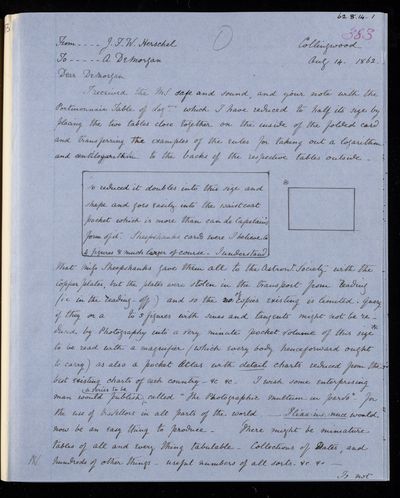 62.8.14.1
383
From - - - - J. F. W. Herschel
Collingwood
To - - - - - A DeMorgan
Aug 14. 1862.
Dear DeMorgan
I received the MS safe and sound, and your note with the
Portmonnaie Table of Logs - which I have reduced to half its size by
placing the two tables close together on the inside of the folded card
and transferring the examples of the rules for taking out a logarithm
and antilogarithm to the backs of the respective tables outside -
so reduced it doubles into this size and
shape and goes easily into the waistcoat
pocket which is more than can do Captain's
form of it. Sheepshanks cards were I believe to
4 figures & much larger of course. I understand
that Miss Sheepshanks gave them all to the Astron.l Society with the
copper plates, but the plates were stolen in the transport from Reading
(ie in the Reading-off) and so the copies existing is limited. Query
if they or a to 5 figures with sines and tangents might not be re-
duced by Photography into a very minute pocket volume of this size
to be read with a magnifier (which every body henceforward ought
to carry) as also a pocket Atlas with detail charts reduced from the
best existing charts of each country - &c &c. I wish some enterprising
man would publish a series to be called "the Photographic multum in parvo" for
the use of travellers in all parts of the world. Ilias in nuce would
now be an easy thing to produce - There might be miniature
tables of all and every thing tabulable - Collections of Dates, and
hundreds of other things - useful numbers of all sorts. &c. &c -
Is not